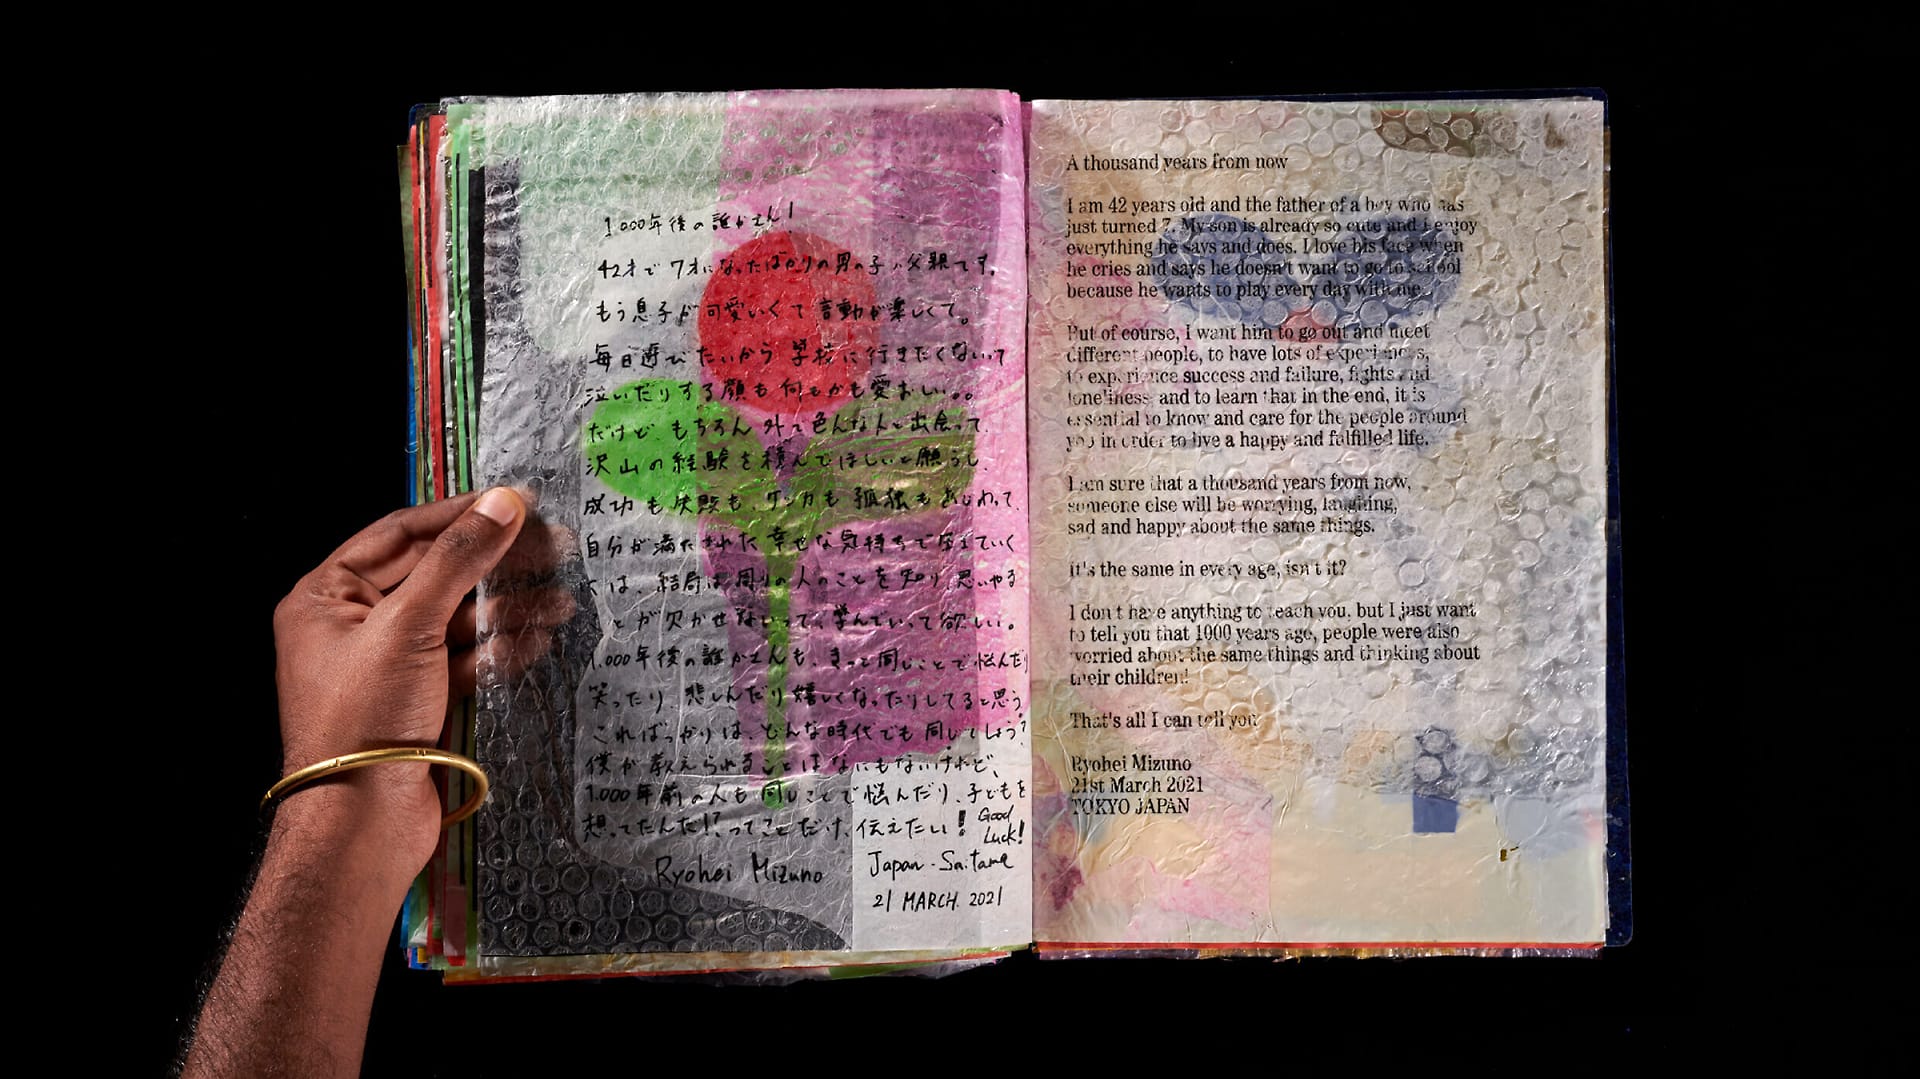 1.000年後の誰かさん!
42才で7才になったばかりの男の子の父親です。
もう息子が可愛いくて言動が楽しくて。
毎日遊びたいから学校に行きたくないって
泣いたりする顔も何もかも愛おしい。。
だけど、もちろん外で色んな人と出会って、
沢山の経験を積んでほしいと願うし、
成功も失敗も、ケンカも孤独もあじわって、
自分が満たされた幸せな気持ちで生きていく
には、結局は周りの人のことを知り思いやる
ことが欠かせないって、学んでいって欲しい。
1.000年後の誰かさんも、きっと同じことで悩んだり
笑ったり、悲しんだり嬉しくなったりしてると思う。
こればっかりは、どんな時代でも同じでしょう?
僕が教えられることはなにもないけれど、
1.000年前の人も同じことで悩んだり、子どもを
想ってたんだ!?ってことだけ、伝えたい! Good Luck!
Ryohei Mizuno
Japan-Saitama
21 MARCH. 2021
A thousand years from now
I am 42 years old and the father of a boy who has
just turned 7. My son is already so cute and I enjoy
everything he says and does. I love his face when
he cries and says he doesn't want to go to school
because he wants to play every day with me.
But of course, I want him to go out and meet
different people, to have lots of experiences,
to experience success and failure, fights and
loneliness, and to learn that in the end, it is
essential to know and care for the people around
you in order to live a happy and fulfilled life.
I am sure that a thousand years from now,
someone else will be worrying, laughing,
sad and happy about the same things.
It's the same in every age, isn't it?
I don't have anything to teach you, but I just want
to tell you that 1000 years ago, people were also
worried about the same things and thinking about
their children!
That's all I can tell you
Ryohei Mizuno
21st March 2021
TOKYO JAPAN